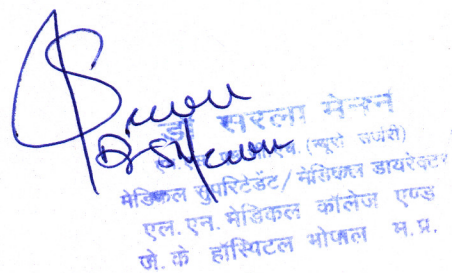 डॉ सरला मेनन
(न्यूरो सर्जरी)
मेडिकल सुपरिटेडेंट/ मेडिकल डायरेक्टर
एल.एन. मेडिकल कॉलेज एण्ड
जे.के हॉस्पिटल भोपाल म.प्र.